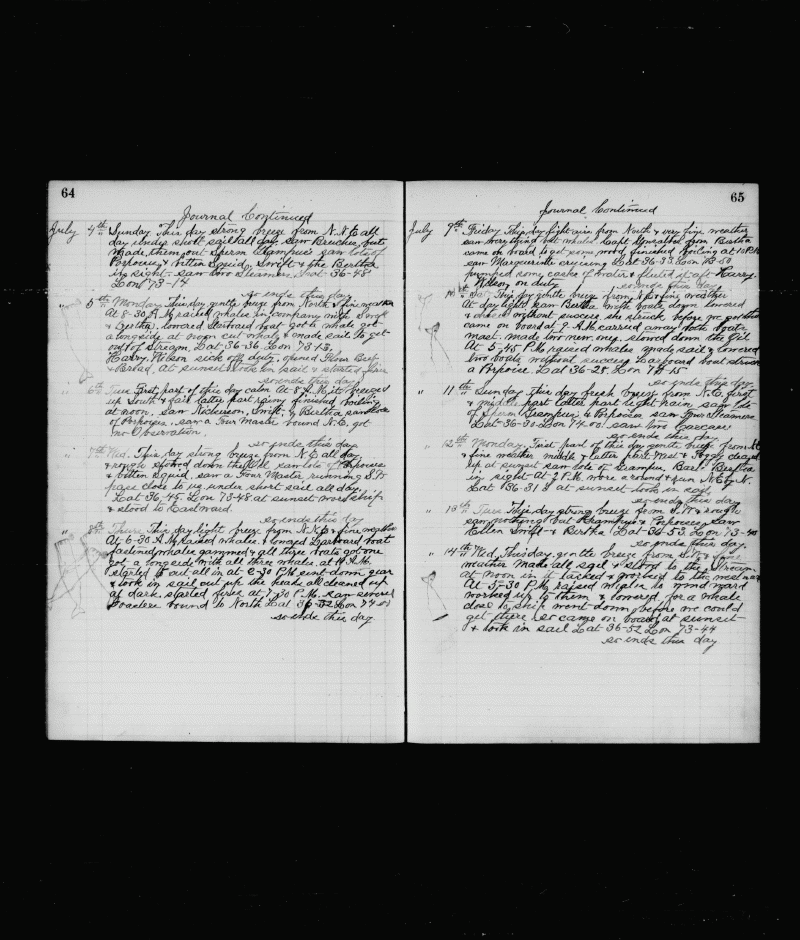 64
Journal Continued
July 4th Sunday This day strong breeze from N.N.E all
day under short sail all day saw Breaches but
made them out Sperm Grampus saw lots of
Porpoises & bitten Squid, Swift & the Bertha
in sight. saw two Steamers Lat-36-48
Lon 73-14
so ends this day
" 5th Monday This day gentle breeze from North & fine weather
At 8-30 A.M raised whales in company with Swift
& Bertha, lowered Larboard boat got a whale got
alongside at noon cut whale & made sail to get
out of Stream. Lat-36-36. Lon 73-13.
Harry Wilson sick off duty. opened Flour Beef
& Bread. At sunset took in sail & started fires
so ends this day
" 6th Tues First part of this day calm At 8 A.M it breezed
up South & fair latter part rainy finished boiling
at noon. saw Nickerson, Swift, & Bertha saw
of Porpoises. saw a Four Master bound N.E. got
no Observation.
so ends this day
" 7th Wed. This day strong breeze from N.E all day
& rough stowed down the Oil saw lots of Porpoises
& bitten squid. saw a Four Master running S.W
pass close to us. under short sail all day.
Lat 36-45. Lon 73-48 at sunset wore ship
& stood to Eastward.
so ends this day
" 8th Thurs This day light breeze from N.N.E & fine weather
At 6-30 A.M raised whales. & lowered Larboard boat
fastened whales gammed & all three boats got one
got alongside with all three whales. at 11 A.M.
started to cut all in at 2-30 P.M. sent down gear
& took in sail cut up the heads all cleaned up
at dark. started fires at 7-30 P.M. saw several
Coasters bound to North Lat 36-52 Lon 74-00
so ends this day
65
Journal Continued
July 9th Friday This day light airs from North & very fine weather
saw everything but whales Capt Gonsalves from Bertha
came on board to get some work finished boiling at 10 P.M
saw Marguerite cruising Lat 36-33 Lon 73-50
pumped some casks of water & fluted it aft Harry
Wilson on duty.
so ends this day
" 10 Sat This day gentle breeze from & fine weather
At daylight saw Bertha with boats down lowered
& without success she struck before we got there
came on board at 9 A.M. carried away both boats
mast. made two new ones. stowed down the Oil
At 5-45 P.M raised whales made sail & lowered
two boats without success Larboard boat struck
a Porpoise Lat 36-28. Lon 73-15
so ends this day
" 11th Sunday This day fresh breeze from N.E. first
& middle part latter part light rain saw lots
of Sperm Grampus & Porpoises saw Four Steamers
Lat 36-30 Lon 74-00. saw two Coasters
so ends this day
" 12th Monday. First part of this day gentle breeze from
& fine weather middle & latter part West & Foggy cleared
up at sunset saw lots of Grampus Bark Bertha
in sight At 2 P.M. wore around & run N.E by N.
Lat 36-31 at sunset took in sail
so ends this day
" 13th Tues This day strong breeze from S.W & rough
saw nothing but Grampus & Porpoises saw
Ellen Swift & Bertha Lat 36-53 Lon 73-40
so ends this day
" 14th Wed. This day gentle breeze from S.W & fine
weather made all sail & stood to the
at noon in it tacked & worked to the
At 5-30 P.M raised whales to windward
worked up to them & lowered for a whale
close to ship went down before we could
get there so came on board at sunset
& took in sail Lat 36-52 Lon 73-44
so ends this day